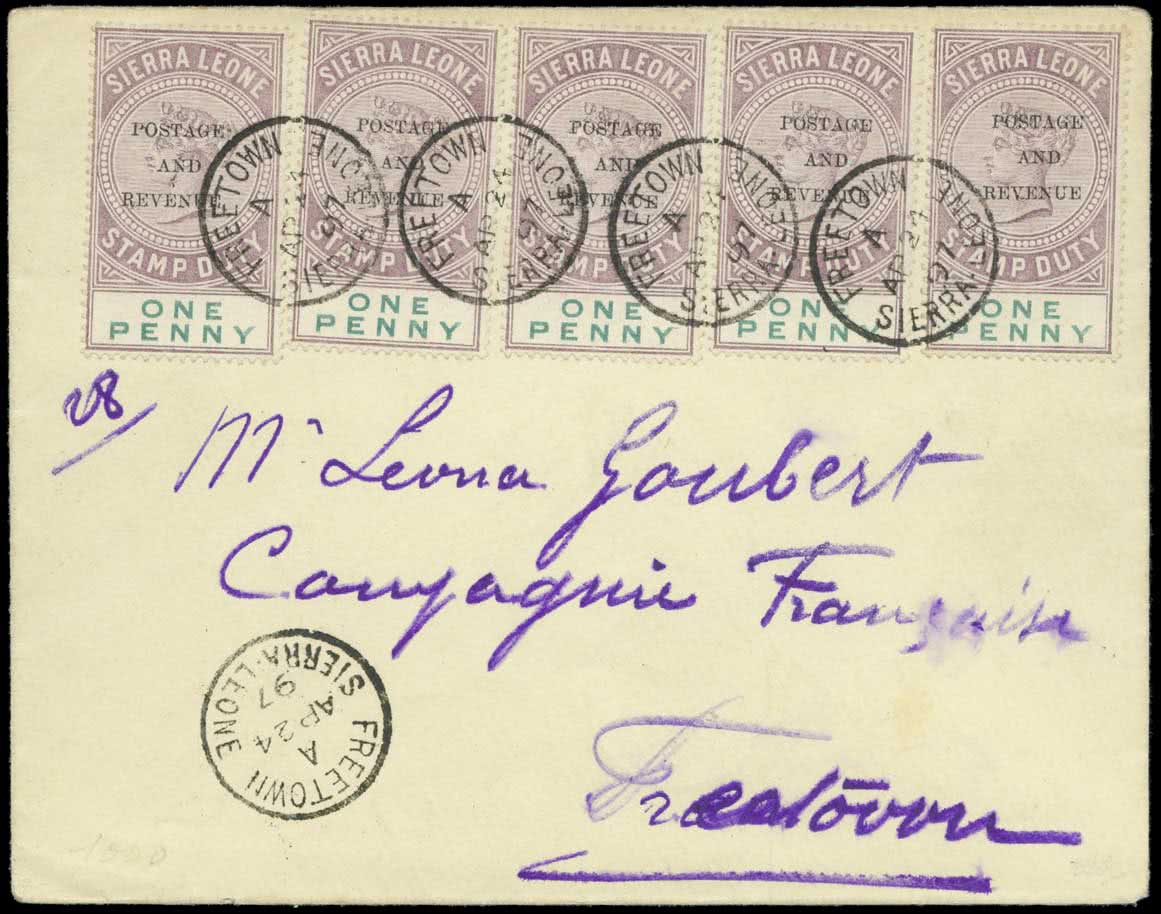 SIERRA LEONE
POSTAGE
AND
REVENUE
STAMP DUTY
ONE
PENNY
SIERRA LEONE
POSTAGE
AND
REVENUE
STAMP DUTY
ONE
PENNY
SIERRA LEONE
POSTAGE
AND
REVENUE
STAMP DUTY
ONE
PENNY
SIERRA LEONE
POSTAGE
AND
REVENUE
STAMP DUTY
ONE
PENNY
SIERRA LEONE
POSTAGE
AND
REVENUE
STAMP DUTY
ONE
PENNY
FREETOWN
A
AP 24
97
SIERRA-LEONE
FREETOWN
A
AP 24
97
SIERRA-LEONE
FREETOWN
A
AP 24
97
SIERRA-LEONE
FREETOWN
A
AP 24
97
SIERRA-LEONE
Mr Leona Goubert
Compagnie Française
Freetown
FREETOWN
A
AP 24
97
SIERRA-LEONE
1500